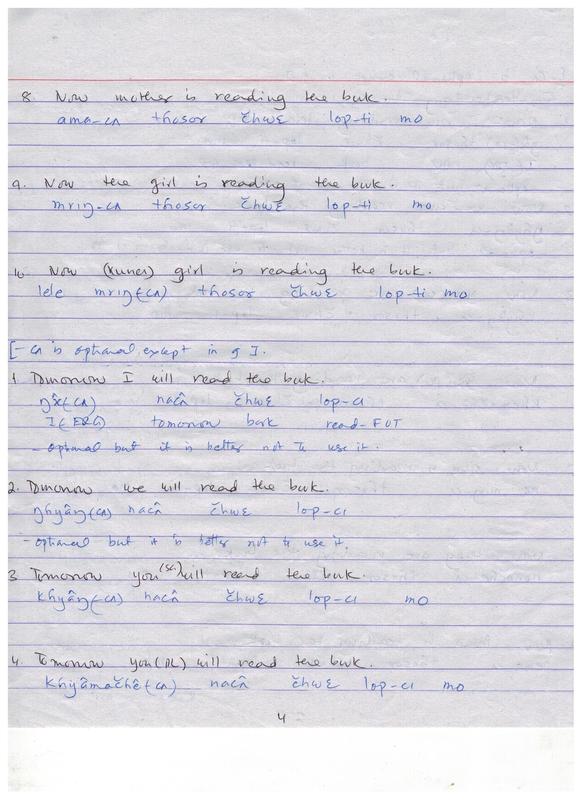 8. Now mother is reading the book.
ama-cʌ thosor čhwɛ lop-ti mo
9. Now the girl is reading the book.
mriŋ-cʌ thosor čhwɛ lop-ti mo
10. Now (Kunes) girl is reading the book.
lele mriŋ(cʌ) thosor čhwɛ lop-ti mo
[-cʌ is optional except in 9 I.
1. Tomorrow I will read the book.
(cʌ) nacʌ̂ čhwɛ lop-cɩ
I(ERG) tomorrow book read-FUT
- optional but it is better not to use it.
2. Tomorrow we will read the book.
ŋhyâŋ(cʌ) nacʌ̂ čhwɛ lop-cɩ
- optional but it is better not to use it.
3. Tomorrow you (SG.) will read the book.
khyâŋ(-cʌ) nacʌ̂ čhwɛ lop-cɩ mo
4. Tomorrow you (PL) will read the book.
khyâmačhê(cʌ) nacʌ̂ čhwɛ lop-cɩ mo
4